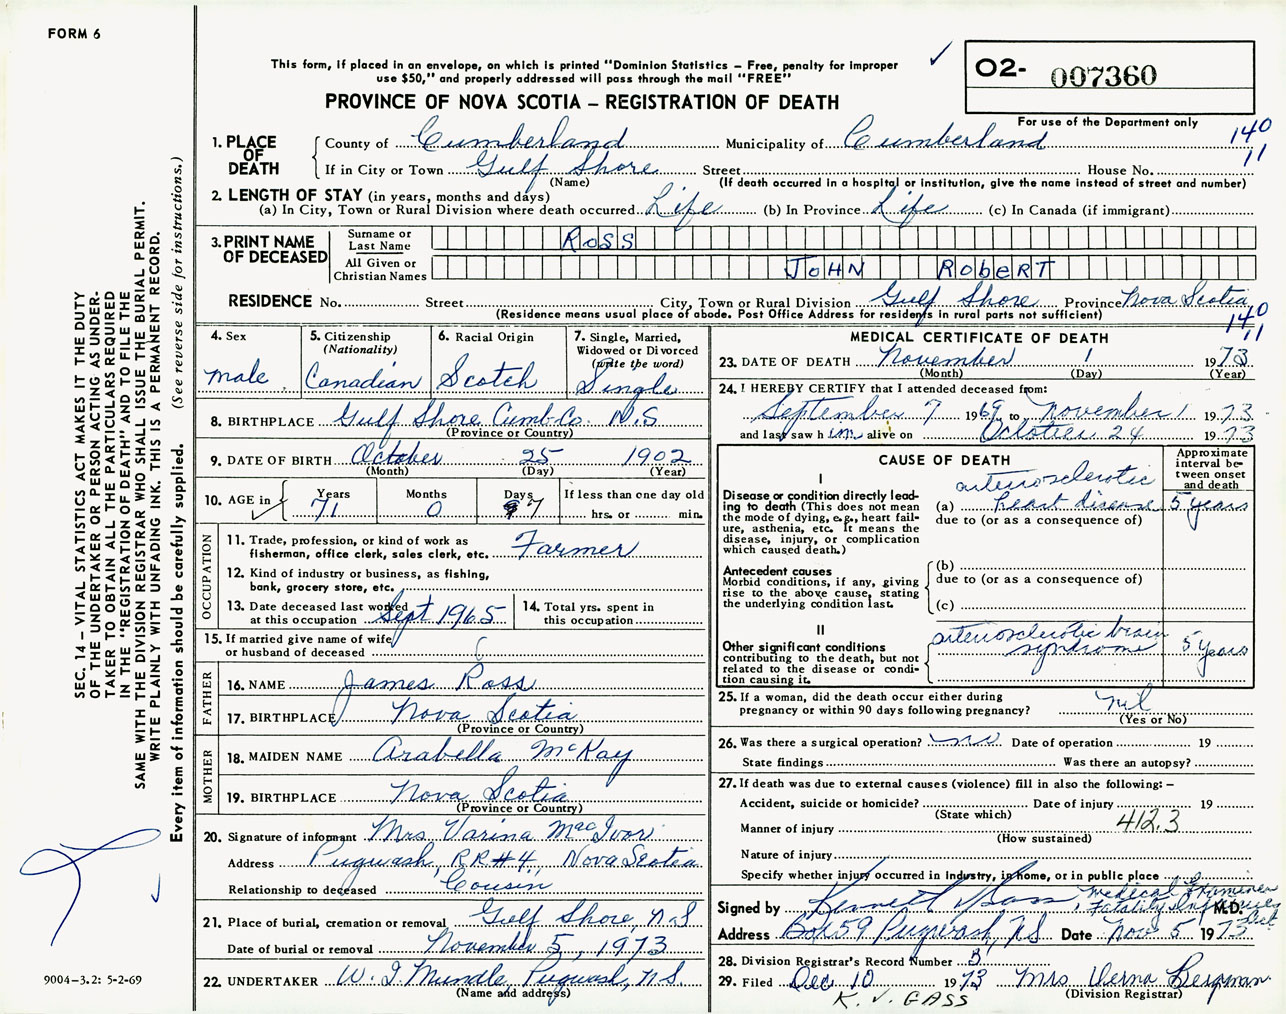 FORM 6
This form, if placed in an envelope, on which is printed "Dominion Statistics – Free, penalty for improper
use $50," and properly addressed will pass through the mail "FREE"
PROVINCE OF NOVA SCOTIA – REGISTRATION OF DEATH
O2- 007360
For use of the Department only
140
11
1. PLACE OF DEATH
County of Cumberland Municipality of Cumberland
If in City or Town Gulf Shore Street House No.
(Name) (If death occurred in a hospital or institution, give the name instead of street and number)
2. LENGTH OF STAY (in years, months and days)
(a) In City, Town or Rural Division where death occurred Life (b) In Province Life (c) In Canada (if immigrant)
3. PRINT NAME OF DECEASED
Surname or Last Name ROSS
All Given or Christian Names JOHN ROBERT
RESIDENCE No. Street City, Town or Rural Division Gulf Shore Province Nova Scotia
(Residence means usual place of abode. Post Office Address for residents in rural parts not sufficient)
140
11
4. Sex
male
5. Citizenship
(Nationality)
Canadian
6. Racial Origin
Scotch
7. Single, Married,
Widowed or Divorced
(write the word)
Single
8. BIRTHPLACE Gulf Shore Cumb. Co. N.S
(Province or Country)
9. DATE OF BIRTH October 25 1902
(Month) (Day) (Year)
10. AGE in
Years Months Days If less than one day old
71 0 7 hrs. or min.
OCCUPATION
11. Trade, profession, or kind of work as
fisherman, office clerk, sales clerk, etc. Farmer
12. Kind of industry or business, as fishing,
bank, grocery store, etc.
13. Date deceased last worked
at this occupation Sept 1965
14. Total yrs. spent in
this occupation
15. If married give name of wife
or husband of deceased
FATHER
16. NAME James Ross
17. BIRTHPLACE Nova Scotia
(Province or Country)
MOTHER
18. MAIDEN NAME Arabella McKay
19. BIRTHPLACE Nova Scotia
(Province or Country)
20. Signature of informant Mrs Varina MacIvor
Address Pugwash, RR#4, Nova Scotia
Relationship to deceased Cousin
21. Place of burial, cremation or removal Gulf Shore, N.S
Date of burial or removal November 5, 1973
22. UNDERTAKER W. I. Mundle, Pugwash, N.S.
(Name and address)
MEDICAL CERTIFICATE OF DEATH
23. DATE OF DEATH November 1 1973
(Month) (Day) (Year)
24. I HEREBY CERTIFY that I attended deceased from:
September 7 1969 to November 1 1973
and last saw him alive on October 24 1973
CAUSE OF DEATH
Approximate
interval be-
tween onset
and death
I
Disease or condition directly lead-
ing to death (This does not mean
the mode of dying, e.g., heart fail-
ure, asthenia, etc. It means the
disease, injury, or complication
which caused death.)
arteriosclerotic
(a) heart disease 5 years
due to (or as a consequence of)
Antecedent causes
Morbid conditions, if any, giving
rise to the above cause, stating
the underlying condition last.
(b)
due to (or as a consequence of)
(c)
II
Other significant conditions
contributing to the death, but not
related to the disease or condi-
tion causing it.
arteriosclerotic brain
syndrome 5 years
25. If a woman, did the death occur either during
pregnancy or within 90 days following pregnancy? nil
(Yes or No)
26. Was there a surgical operation? no Date of operation 19
State findings Was there an autopsy?
27. If death was due to external causes (violence) fill in also the following: –
Accident, suicide or homicide? Date of injury 19
(State which)
Manner of injury 412.3
(How sustained)
Nature of injury
Specify whether injury occurred in Industry, in home, or in public place
Signed by Kennett Gass, Medical Examiner Fatality Inquiries Act M.D.
Address Box 59 Pugwash, NS Date Nov 5 1973
28. Division Registrar's Record Number 3
29. Filed Dec 10 1973 Mrs Verna Bergman
(Division Registrar)
K. V. GASS
SEC. 14 – VITAL STATISTICS ACT MAKES IT THE DUTY
OF THE UNDERTAKER OR PERSON ACTING AS UNDER-
TAKER TO OBTAIN ALL THE PARTICULARS REQUIRED
IN THE "REGISTRATION OF DEATH" AND TO FILE THE
SAME WITH THE DIVISION REGISTRAR WHO SHALL ISSUE THE BURIAL PERMIT.
WRITE PLAINLY WITH UNFADING INK. THIS IS A PERMANENT RECORD.
Every item of information should be carefully supplied. (See reverse side for instructions.)
9004-3.2: 5-2-69